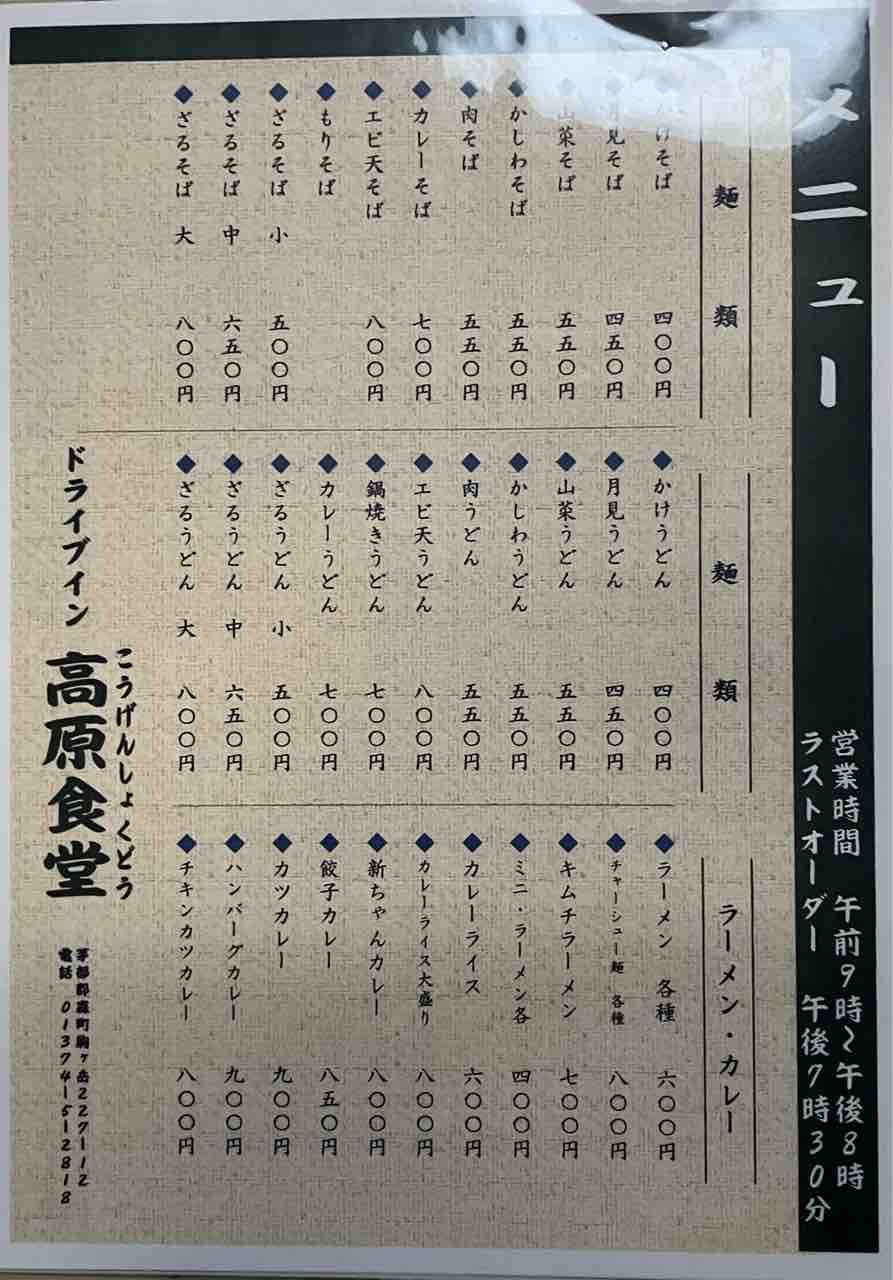 メニュー
営業時間 午前9時～午後8時
ラストオーダー 午後7時30分
麺類
かけそば 四〇〇円
月見そば 四五〇円
山菜そば 五五〇円
かしわそば 五五〇円
肉そば 五五〇円
カレーそば 七〇〇円
エビ天そば 八〇〇円
もりそば
ざるそば 小 五〇〇円
ざるそば 中 六五〇円
ざるそば 大 八〇〇円
麺類
かけうどん 四〇〇円
月見うどん 四五〇円
山菜うどん 五五〇円
かしわうどん 五五〇円
肉うどん 五五〇円
エビ天うどん 八〇〇円
鍋焼きうどん 七〇〇円
カレーうどん 七〇〇円
ざるうどん 小 五〇〇円
ざるうどん 中 六五〇円
ざるうどん 大 八〇〇円
ラーメン・カレー
ラーメン 各種 六〇〇円
チャーシュー麺 各種 八〇〇円
キムチラーメン 七〇〇円
ミニ・ラーメン各 四〇〇円
カレーライス 六〇〇円
カレーライス大盛り 八〇〇円
新ちゃんカレー 八〇〇円
餃子カレー 八五〇円
カツカレー 九〇〇円
ハンバーグカレー 九〇〇円
チキンカツカレー 八〇〇円
ドライブイン
こうげんしょくどう
高原食堂
茅部郡森町駒ヶ岳227-12
電話 01374-5-2818